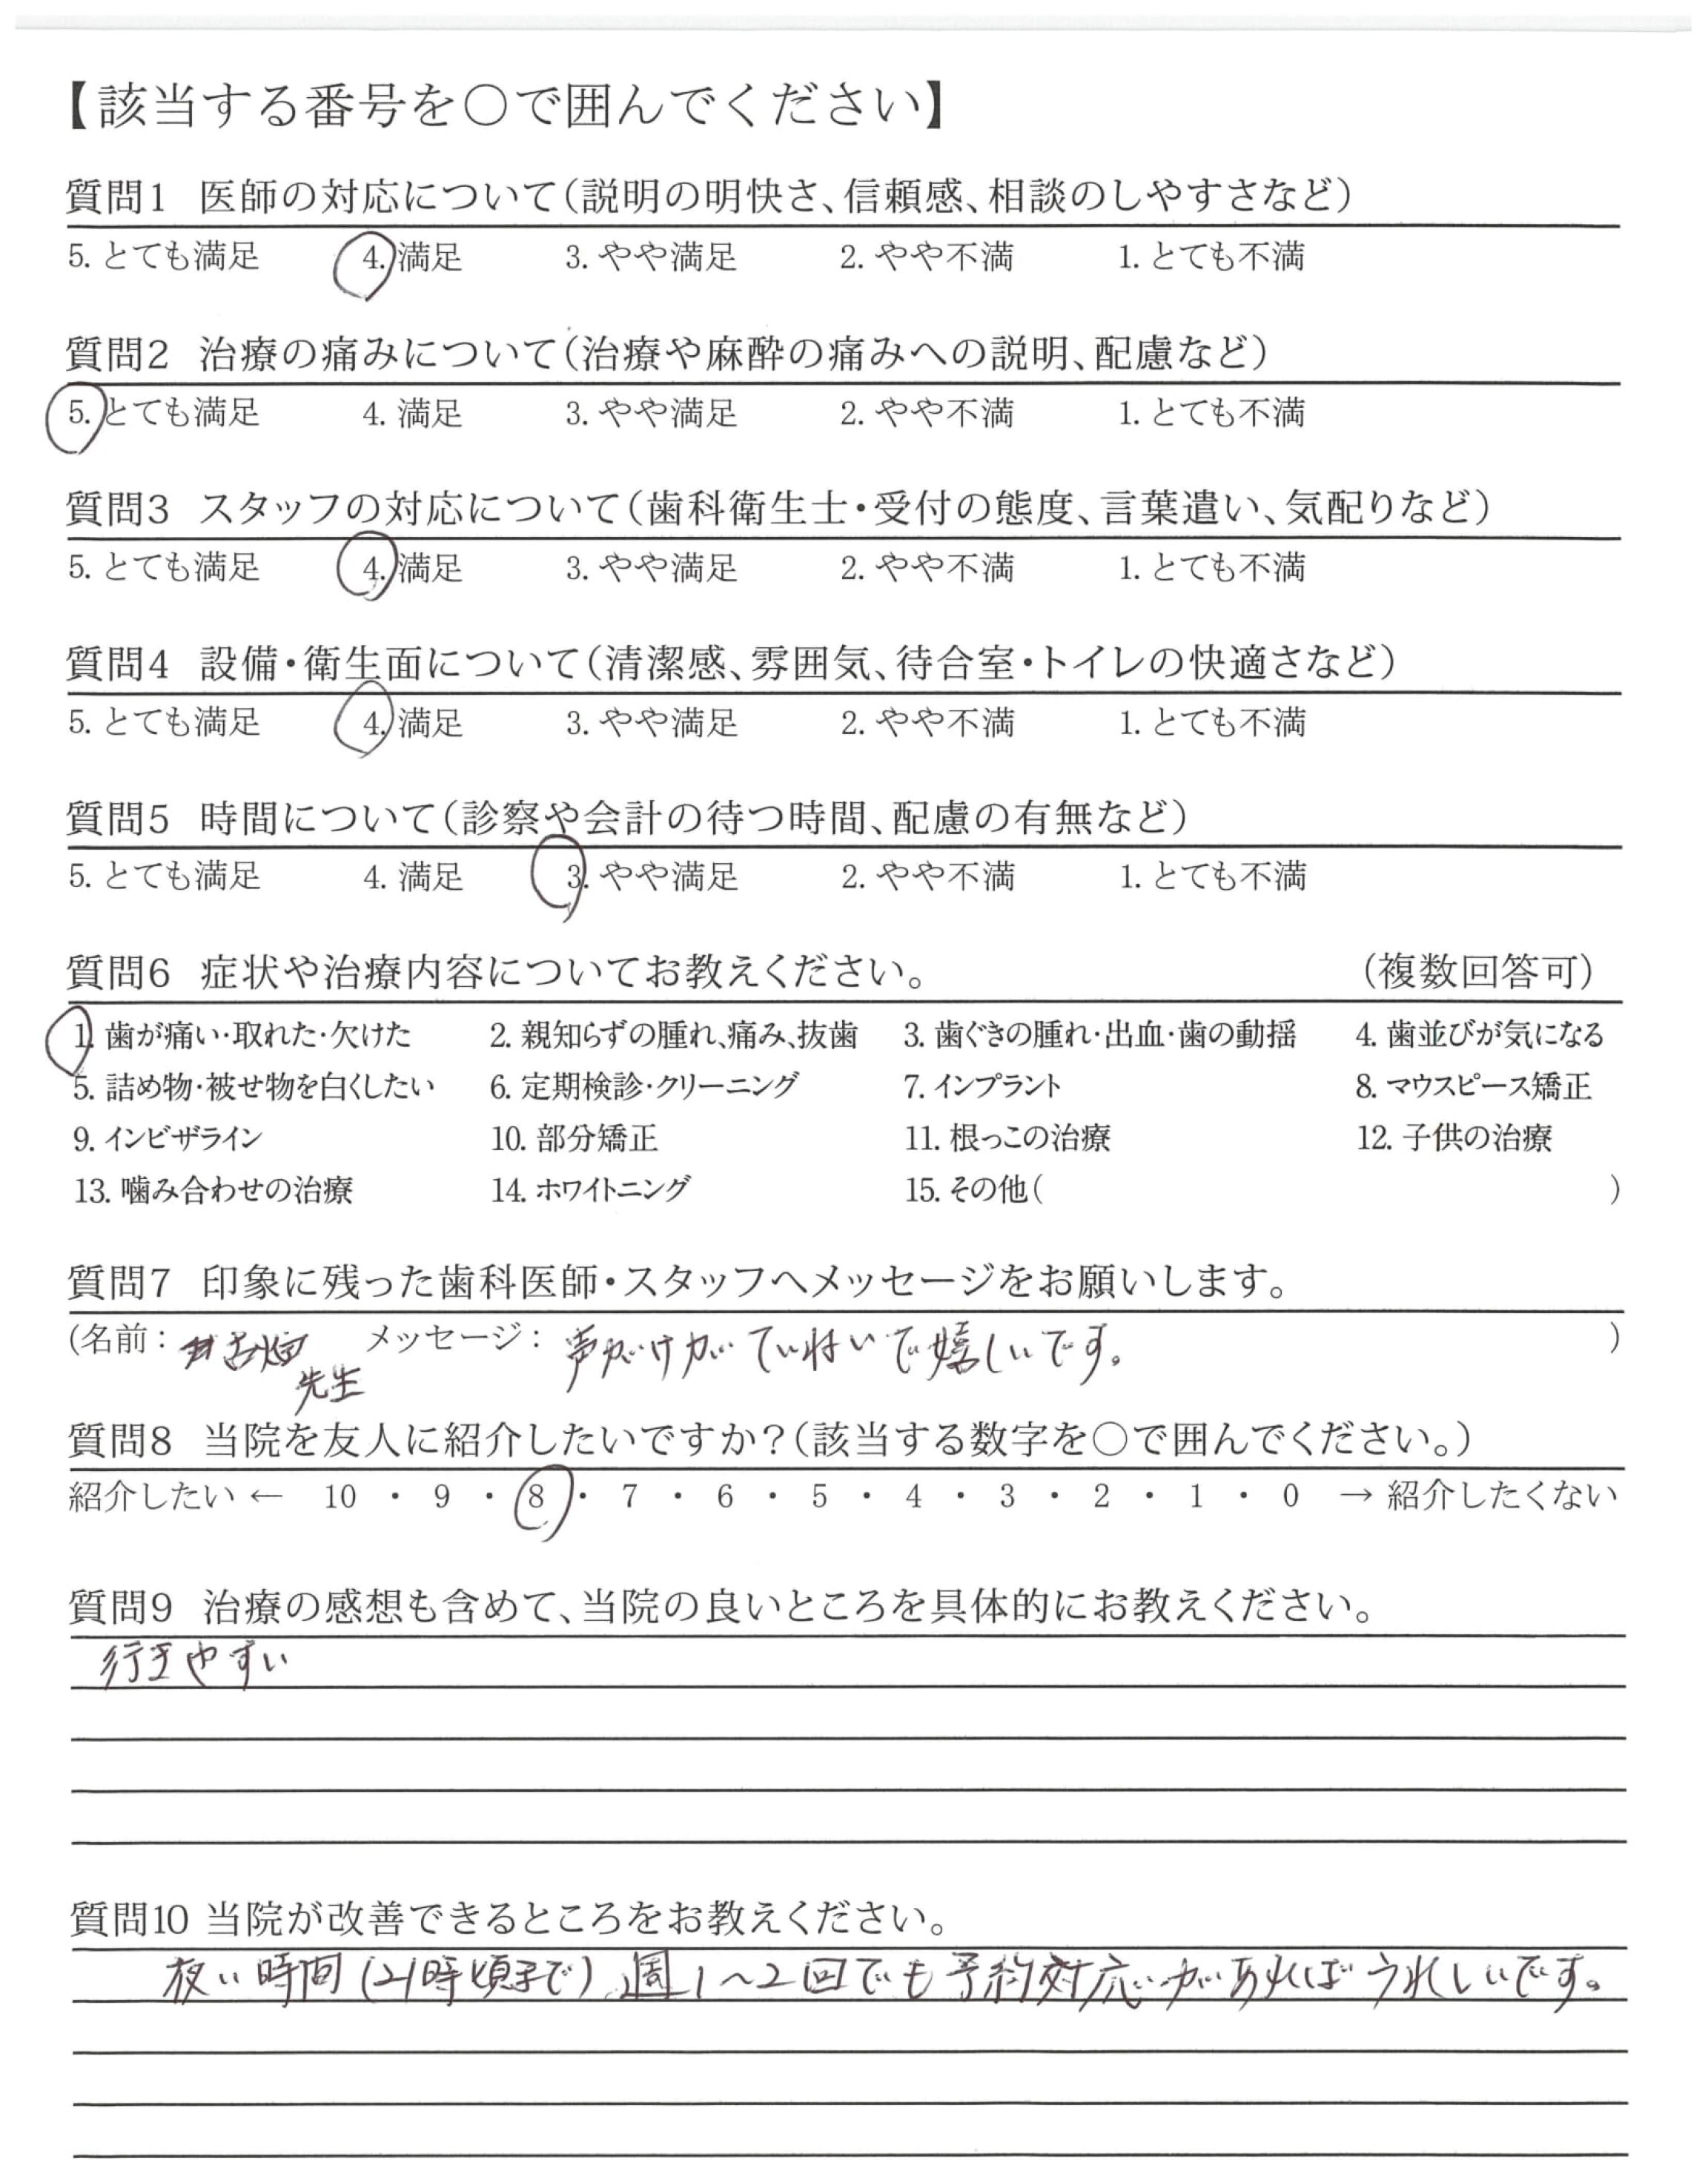 【該当する番号を○で囲んでください】
質問1 医師の対応について(説明の明快さ、信頼感、相談のしやすさなど)
5. とても満足 4. 満足 3. やや満足 2. やや不満 1. とても不満
質問2 治療の痛みについて(治療や麻酔の痛みへの説明、配慮など)
5. とても満足 4. 満足 3. やや満足 2. やや不満 1. とても不満
質問3 スタッフの対応について(歯科衛生士・受付の態度、言葉遣い、気配りなど)
5. とても満足 4. 満足 3. やや満足 2. やや不満 1. とても不満
質問4 設備・衛生面について(清潔感、雰囲気、待合室・トイレの快適さなど)
5. とても満足 4. 満足 3. やや満足 2. やや不満 1. とても不満
質問5 時間について(診察や会計の待つ時間、配慮の有無など)
5. とても満足 4. 満足 3. やや満足 2. やや不満 1. とても不満
質問6 症状や治療内容についてお教えください。 (複数回答可)
1. 歯が痛い・取れた・欠けた 2. 親知らずの腫れ、痛み、抜歯 3. 歯ぐきの腫れ・出血・歯の動揺 4. 歯並びが気になる
5. 詰め物・被せ物を白くしたい 6. 定期検診・クリーニング 7. インプラント 8. マウスピース矯正
9. インビザライン 10. 部分矯正 11. 根っこの治療 12. 子供の治療
13. 噛み合わせの治療 14. ホワイトニング 15. その他( )
質問7 印象に残った歯科医師・スタッフへメッセージをお願いします。
(名前: 先生 メッセージ: 声がけがていねいで嬉しいです。 )
質問8 当院を友人に紹介したいですか?(該当する数字を○で囲んでください。)
紹介したい ← 10 ・ 9 ・ 8 ・ 7 ・ 6 ・ 5 ・ 4 ・ 3 ・ 2 ・ 1 ・ 0 → 紹介したくない
質問9 治療の感想も含めて、当院の良いところを具体的にお教えください。
行きやすい
質問10 当院が改善できるところをお教えください。
夜い時間(21時頃まで)週1〜2回でも予約対応があればうれしいです。